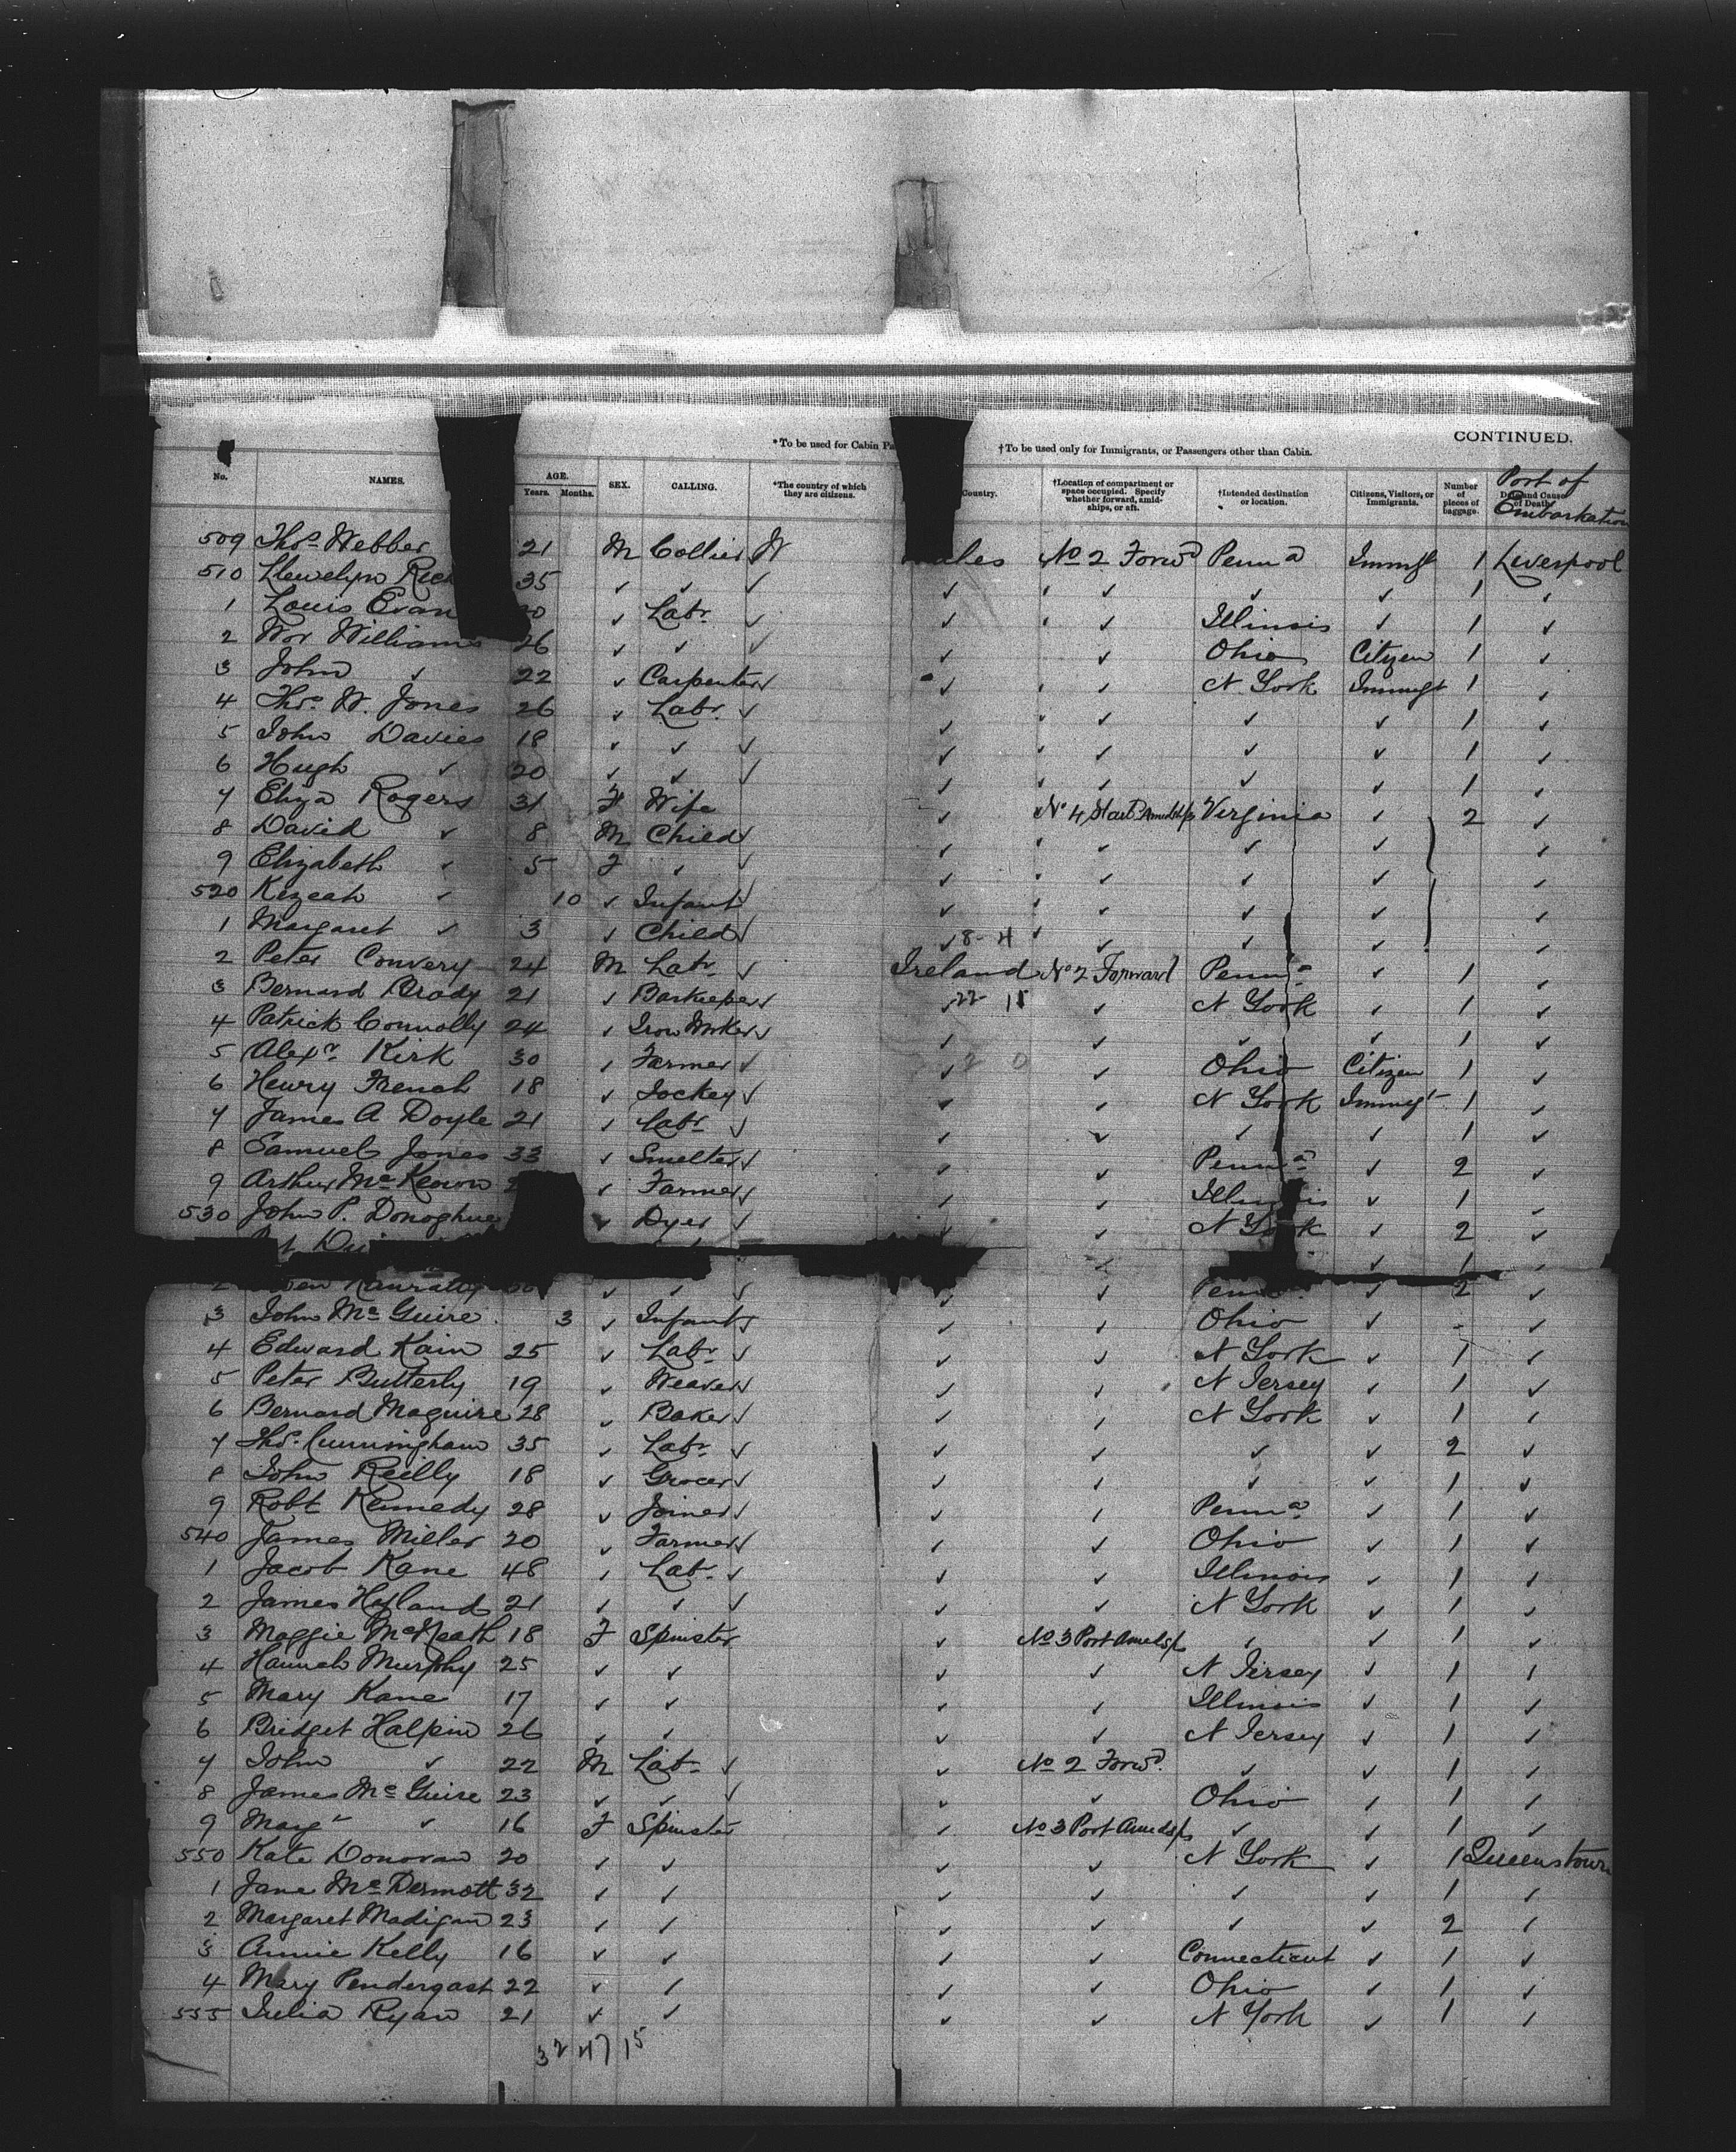 CONTINUED.
*To be used for Cabin Pa †To be used only for Immigrants, or Passengers other than Cabin.
No. NAMES. AGE. Years. Months. SEX. CALLING. *The country of which they are citizens. Country. †Location of compartment or space occupied. Specify whether forward, amidships, or aft. †Intended destination or location. Citizens, Visitors, or Immigrants. Number of pieces of baggage. Date and Cause of Death. Port of Embarkation
509 Thos. Webber 21 M Collier W ales No 2 Forwd Penna Immgt 1 Liverpool
510 Llewelyn Rich 35 ✓ ✓ ✓ ✓ ✓ ✓ ✓ 1 ✓
1 Louis Evan 20 ✓ Labr. ✓ ✓ ✓ Illinois ✓ 1 ✓
2 Wm Williams 26 ✓ ✓ ✓ ✓ ✓ Ohio Citizen 1 ✓
3 John ✓ 22 ✓ Carpenter ✓ ✓ ✓ N York Immgt 1 ✓
4 Thos. W. Jones 26 ✓ Labr. ✓ ✓ ✓ ✓ ✓ 1 ✓
5 John Davies 18 ✓ ✓ ✓ ✓ ✓ ✓ ✓ 1 ✓
6 Hugh ✓ 20 ✓ ✓ ✓ ✓ ✓ ✓ ✓ 1 ✓
7 Eliza Rogers 31 F Wife ✓ No 4 Starbd Amidsh/ps Virginia ✓ 2 ✓
8 David ✓ 8 M Child ✓ ✓ ✓ ✓ ✓ ✓
9 Elizabeth ✓ 5 F ✓ ✓ ✓ ✓ ✓ ✓ ✓
520 Kezeah ✓ 10 ✓ Infant ✓ ✓ ✓ ✓ ✓ ✓
1 Margaret ✓ 3 ✓ Child ✓ ✓ 8-4 ✓ ✓ ✓ ✓
2 Peter Convery 24 M Labr. ✓ Ireland No 2 Forward Penna ✓ 1 ✓
3 Bernard Brady 21 ✓ Barkeeper ✓ ✓ 22 11 ✓ N York ✓ 1 ✓
4 Patrick Connolly 24 ✓ Iron Worker ✓ ✓ ✓ ✓ ✓ 1 ✓
5 Alexr. Kirk 30 ✓ Farmer ✓ ✓ 2 0 ✓ Ohio Citizen 1 ✓
6 Henry French 18 ✓ Jockey ✓ ✓ ✓ N York Immgt 1 ✓
7 James A Doyle 21 ✓ Labr. ✓ ✓ ✓ ✓ ✓ 1 ✓
8 Samuel Jones 33 ✓ Smelter ✓ ✓ ✓ Penna ✓ 2 ✓
9 Arthur McKeown 2 ✓ Farmer ✓ ✓ ✓ Illinois ✓ 1 ✓
530 John P. Donoghue ✓ Dyer ✓ ✓ ✓ N York ✓ 2 ✓
✓ ✓ 1 ✓
2 ✓ ✓ ✓ ✓ ✓ Penna ✓ 2 ✓
3 John McGuire 3 ✓ Infant ✓ ✓ ✓ Ohio ✓ - ✓
4 Edward Kain 25 ✓ Labr. ✓ ✓ ✓ N York ✓ 1 ✓
5 Peter Butterly 19 ✓ Weaver ✓ ✓ ✓ N Jersey ✓ 1 ✓
6 Bernard Maguire 28 ✓ Baker ✓ ✓ ✓ N York ✓ 1 ✓
7 Thos. Cunningham 35 ✓ Labr. ✓ ✓ ✓ ✓ ✓ 2 ✓
8 John Reilly 18 ✓ Grocer ✓ ✓ ✓ ✓ ✓ 1 ✓
9 Robt Kennedy 28 ✓ Joiner ✓ ✓ ✓ Penna. ✓ 1 ✓
540 James Miller 20 ✓ Farmer ✓ ✓ ✓ Ohio ✓ 1 ✓
1 Jacob Kane 48 ✓ Labr. ✓ ✓ ✓ Illinois ✓ 1 ✓
2 James Hyland 21 ✓ ✓ ✓ ✓ ✓ N York ✓ 1 ✓
3 Maggie McNeath 18 F Spinster ✓ No 3 Port Amids/ps ✓ ✓ 1 ✓
4 Hannah Murphy 25 ✓ ✓ ✓ ✓ N Jersey ✓ 1 ✓
5 Mary Kane 17 ✓ ✓ ✓ ✓ Illinois ✓ 1 ✓
6 Bridget Halpin 26 ✓ ✓ ✓ ✓ N Jersey ✓ 1 ✓
7 John ✓ 22 M Labr. ✓ ✓ No 2 Forwd. ✓ ✓ 1 ✓
8 James McGuire 23 ✓ ✓ ✓ ✓ ✓ Ohio ✓ 1 ✓
9 Margt ✓ 16 F Spinster ✓ No 3 Port Amids/ps ✓ ✓ 1 ✓
550 Kate Donovan 20 ✓ ✓ ✓ ✓ N York ✓ 1 Queenstown
1 Jane McDermott 32 ✓ ✓ ✓ ✓ ✓ ✓ 1 ✓
2 Margaret Madigan 23 ✓ ✓ ✓ ✓ ✓ ✓ 2 ✓
3 Annie Kelly 16 ✓ ✓ ✓ ✓ Connecticut ✓ 1 ✓
4 Mary Pendergast 22 ✓ ✓ ✓ ✓ Ohio ✓ 1 ✓
555 Julia Ryan 21 ✓ ✓ ✓ ✓ N York ✓ 1 ✓
32 47 15